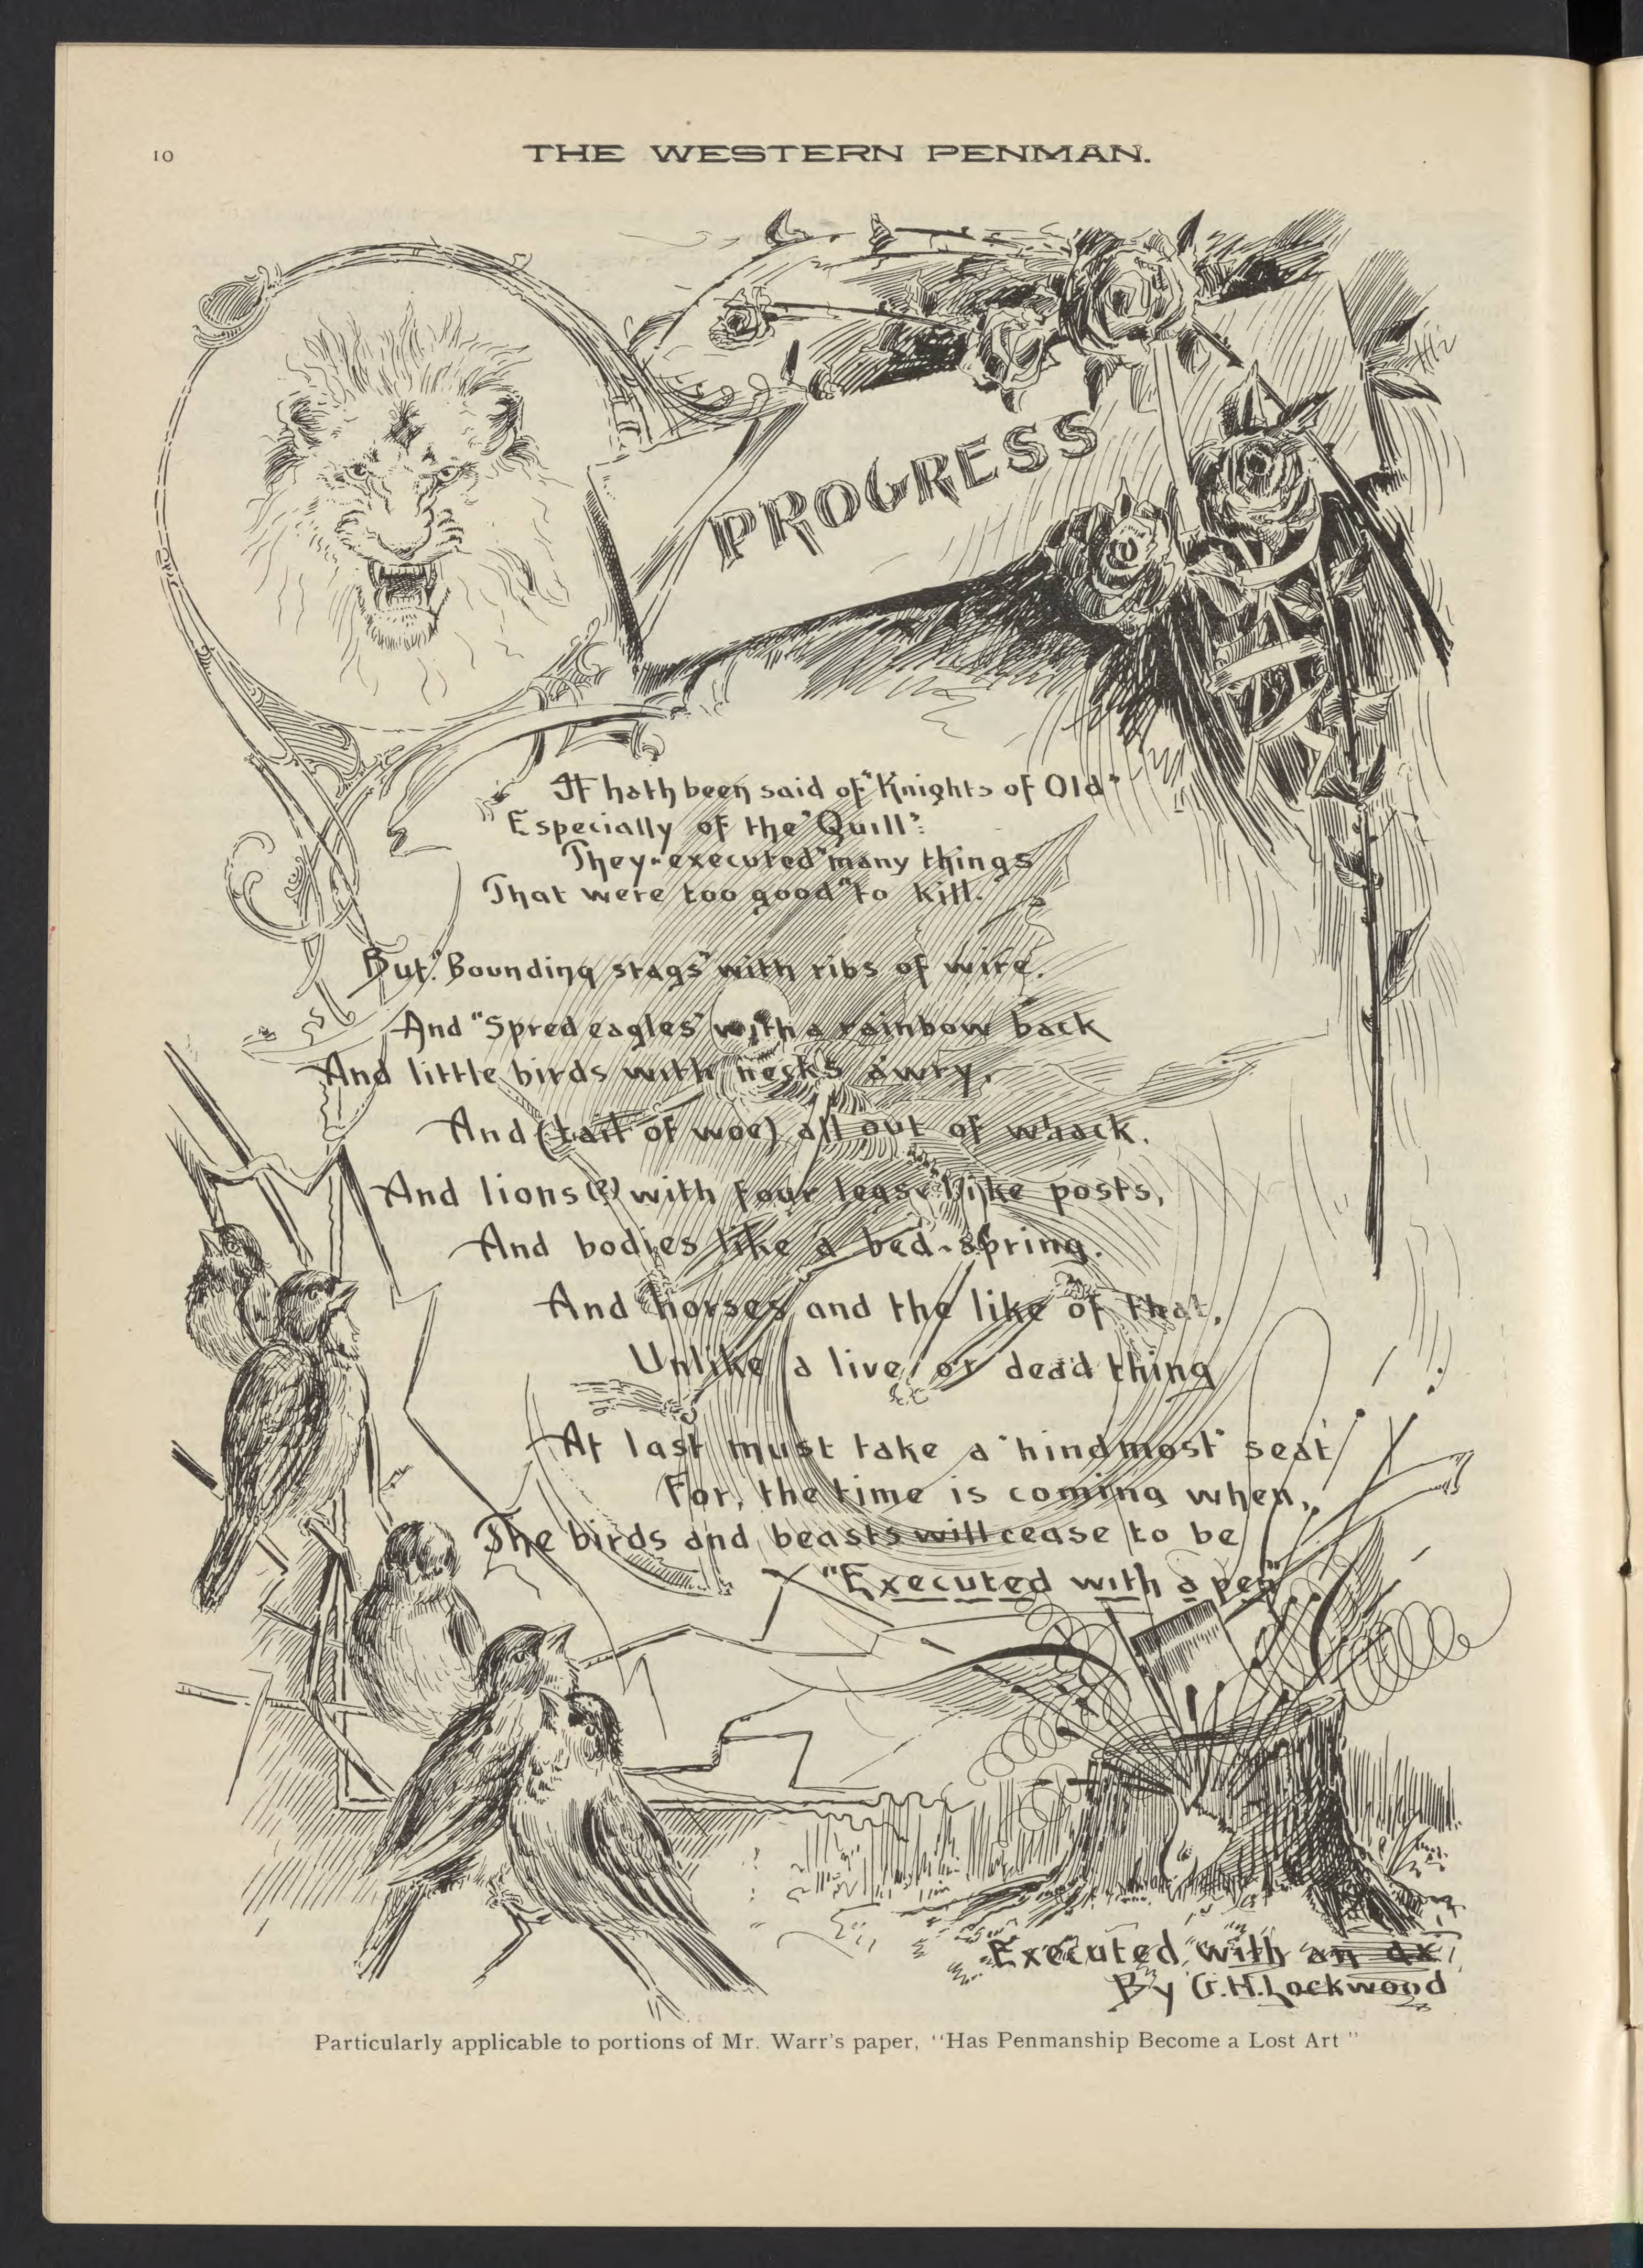 10
THE WESTERN PENMAN.
PROGRESS
It hath been said of "Knights of Old"
Especially of the "Quill":
They "executed" many things
That were "too good" to kill.
But "Bounding stags" with ribs of wire.
And "Spred eagles" with a rainbow back
And little birds with necks awry,
And (tail of woe) all out of whack.
And lions(?) with four legs like posts,
And bodies like a bed-spring.
And horses and the like of that,
Unlike a live, or dead thing
At last must take a "hindmost" seat
For, the time is coming when,
The birds and beasts will cease to be
"Executed with a pen"
Executed "with an ax"
By G.H. Lockwood
Particularly applicable to portions of Mr. Warr's paper, "Has Penmanship Become a Lost Art"